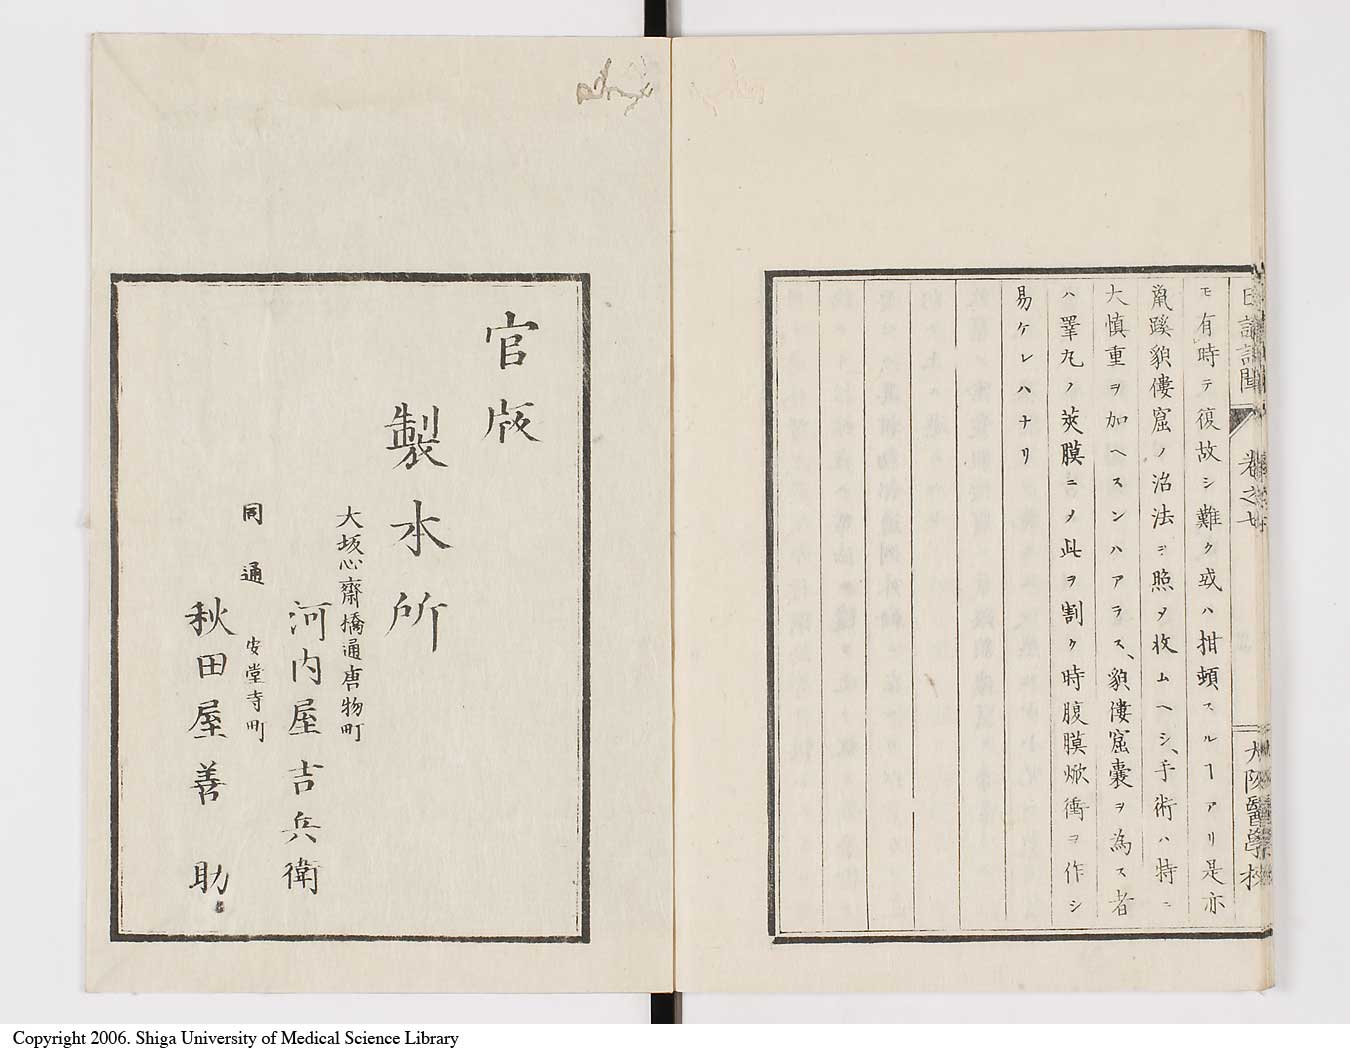 日講記聞 卷之廿 大阪醫學校
モ有時テ復故シ難ク或ハ拑頓スルヿアリ是亦
鼠蹊貌僂窟ノ治法ヲ照メ救ムヘシ、手術ハ特ニ
大慎重ヲ加ヘスンハアラス、貌僂窟囊ヲ為ス者
ハ睪丸ノ莢膜ニメ此ヲ割ク時腹膜焮衝ヲ作シ
易ケレハナリ
官版
製本所
大坂心齋橋通唐物町
河内屋吉兵衛
同通 安堂寺町
秋田屋善助
Copyright 2006. Shiga University of Medical Science Library